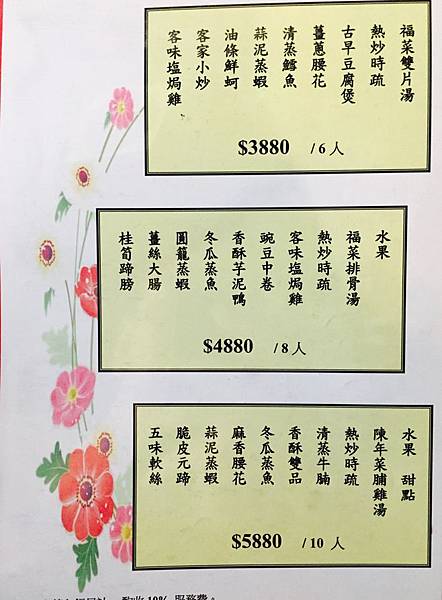 福菜雙片湯
熱炒時疏
古早豆腐煲
薑蔥腰花
清蒸鱈魚
蒜泥蒸蝦
油條鮮蚵
客家小炒
客味塩焗雞
$3880 /6人
水果
福菜排骨湯
熱炒時疏
客味塩焗雞
豌豆中卷
香酥芋泥鴨
冬瓜蒸魚
圓籠蒸蝦
薑絲大腸
桂筍蹄膀
$4880 /8人
水果 甜點
陳年菜脯雞湯
熱炒時疏
清蒸牛腩
香酥雙品
冬瓜蒸魚
麻香腰花
蒜泥蒸蝦
脆皮元蹄
五味軟絲
$5880 /10 人
酌收 10% 服務費。